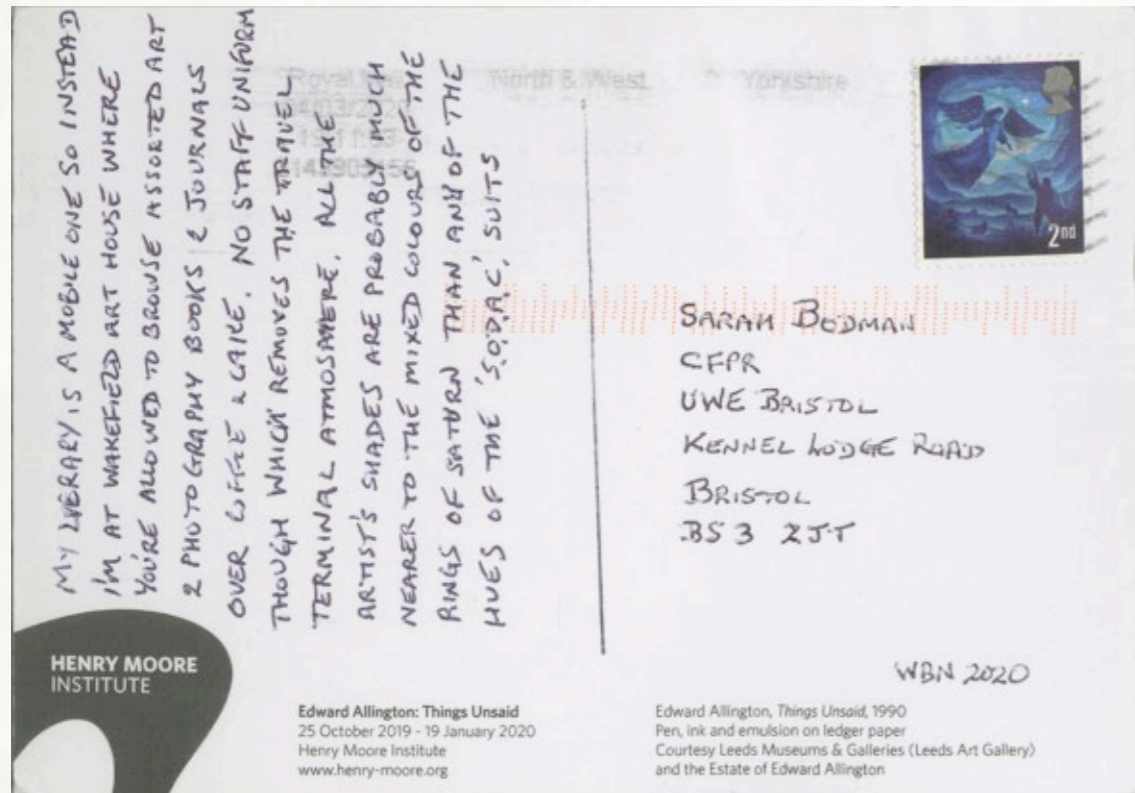 MY LIBRARY IS A MOBILE ONE SO INSTEAD
I'M AT WAKEFIELD ART HOUSE WHERE
YOU'RE ALLOWED TO BROWSE ASSORTED ART
& PHOTOGRAPHY BOOKS & JOURNALS
OVER COFFEE & CAKE. NO STAFF UNIFORM
THOUGH WHICH REMOVES THE TRAVEL
TERMINAL ATMOSPHERE. ALL THE
ARTIST'S SHADES ARE PROBABLY MUCH
NEARER TO THE MIXED COLOURS OF THE
RINGS OF SATURN THAN ANY OF THE
HUES OF THE 'S.O.P.A.C.' SUITS
Royal Mail North & West Yorkshire
04/03/2020
2nd
SARAH BODMAN
CFPR
UWE BRISTOL
KENNEL LODGE ROAD
BRISTOL
BS3 2JT
WBN 2020
HENRY MOORE
INSTITUTE
Edward Allington: Things Unsaid
25 October 2019 - 19 January 2020
Henry Moore Institute
www.henry-moore.org
Edward Allington, Things Unsaid, 1990
Pen, ink and emulsion on ledger paper
Courtesy Leeds Museums & Galleries (Leeds Art Gallery)
and the Estate of Edward Allington